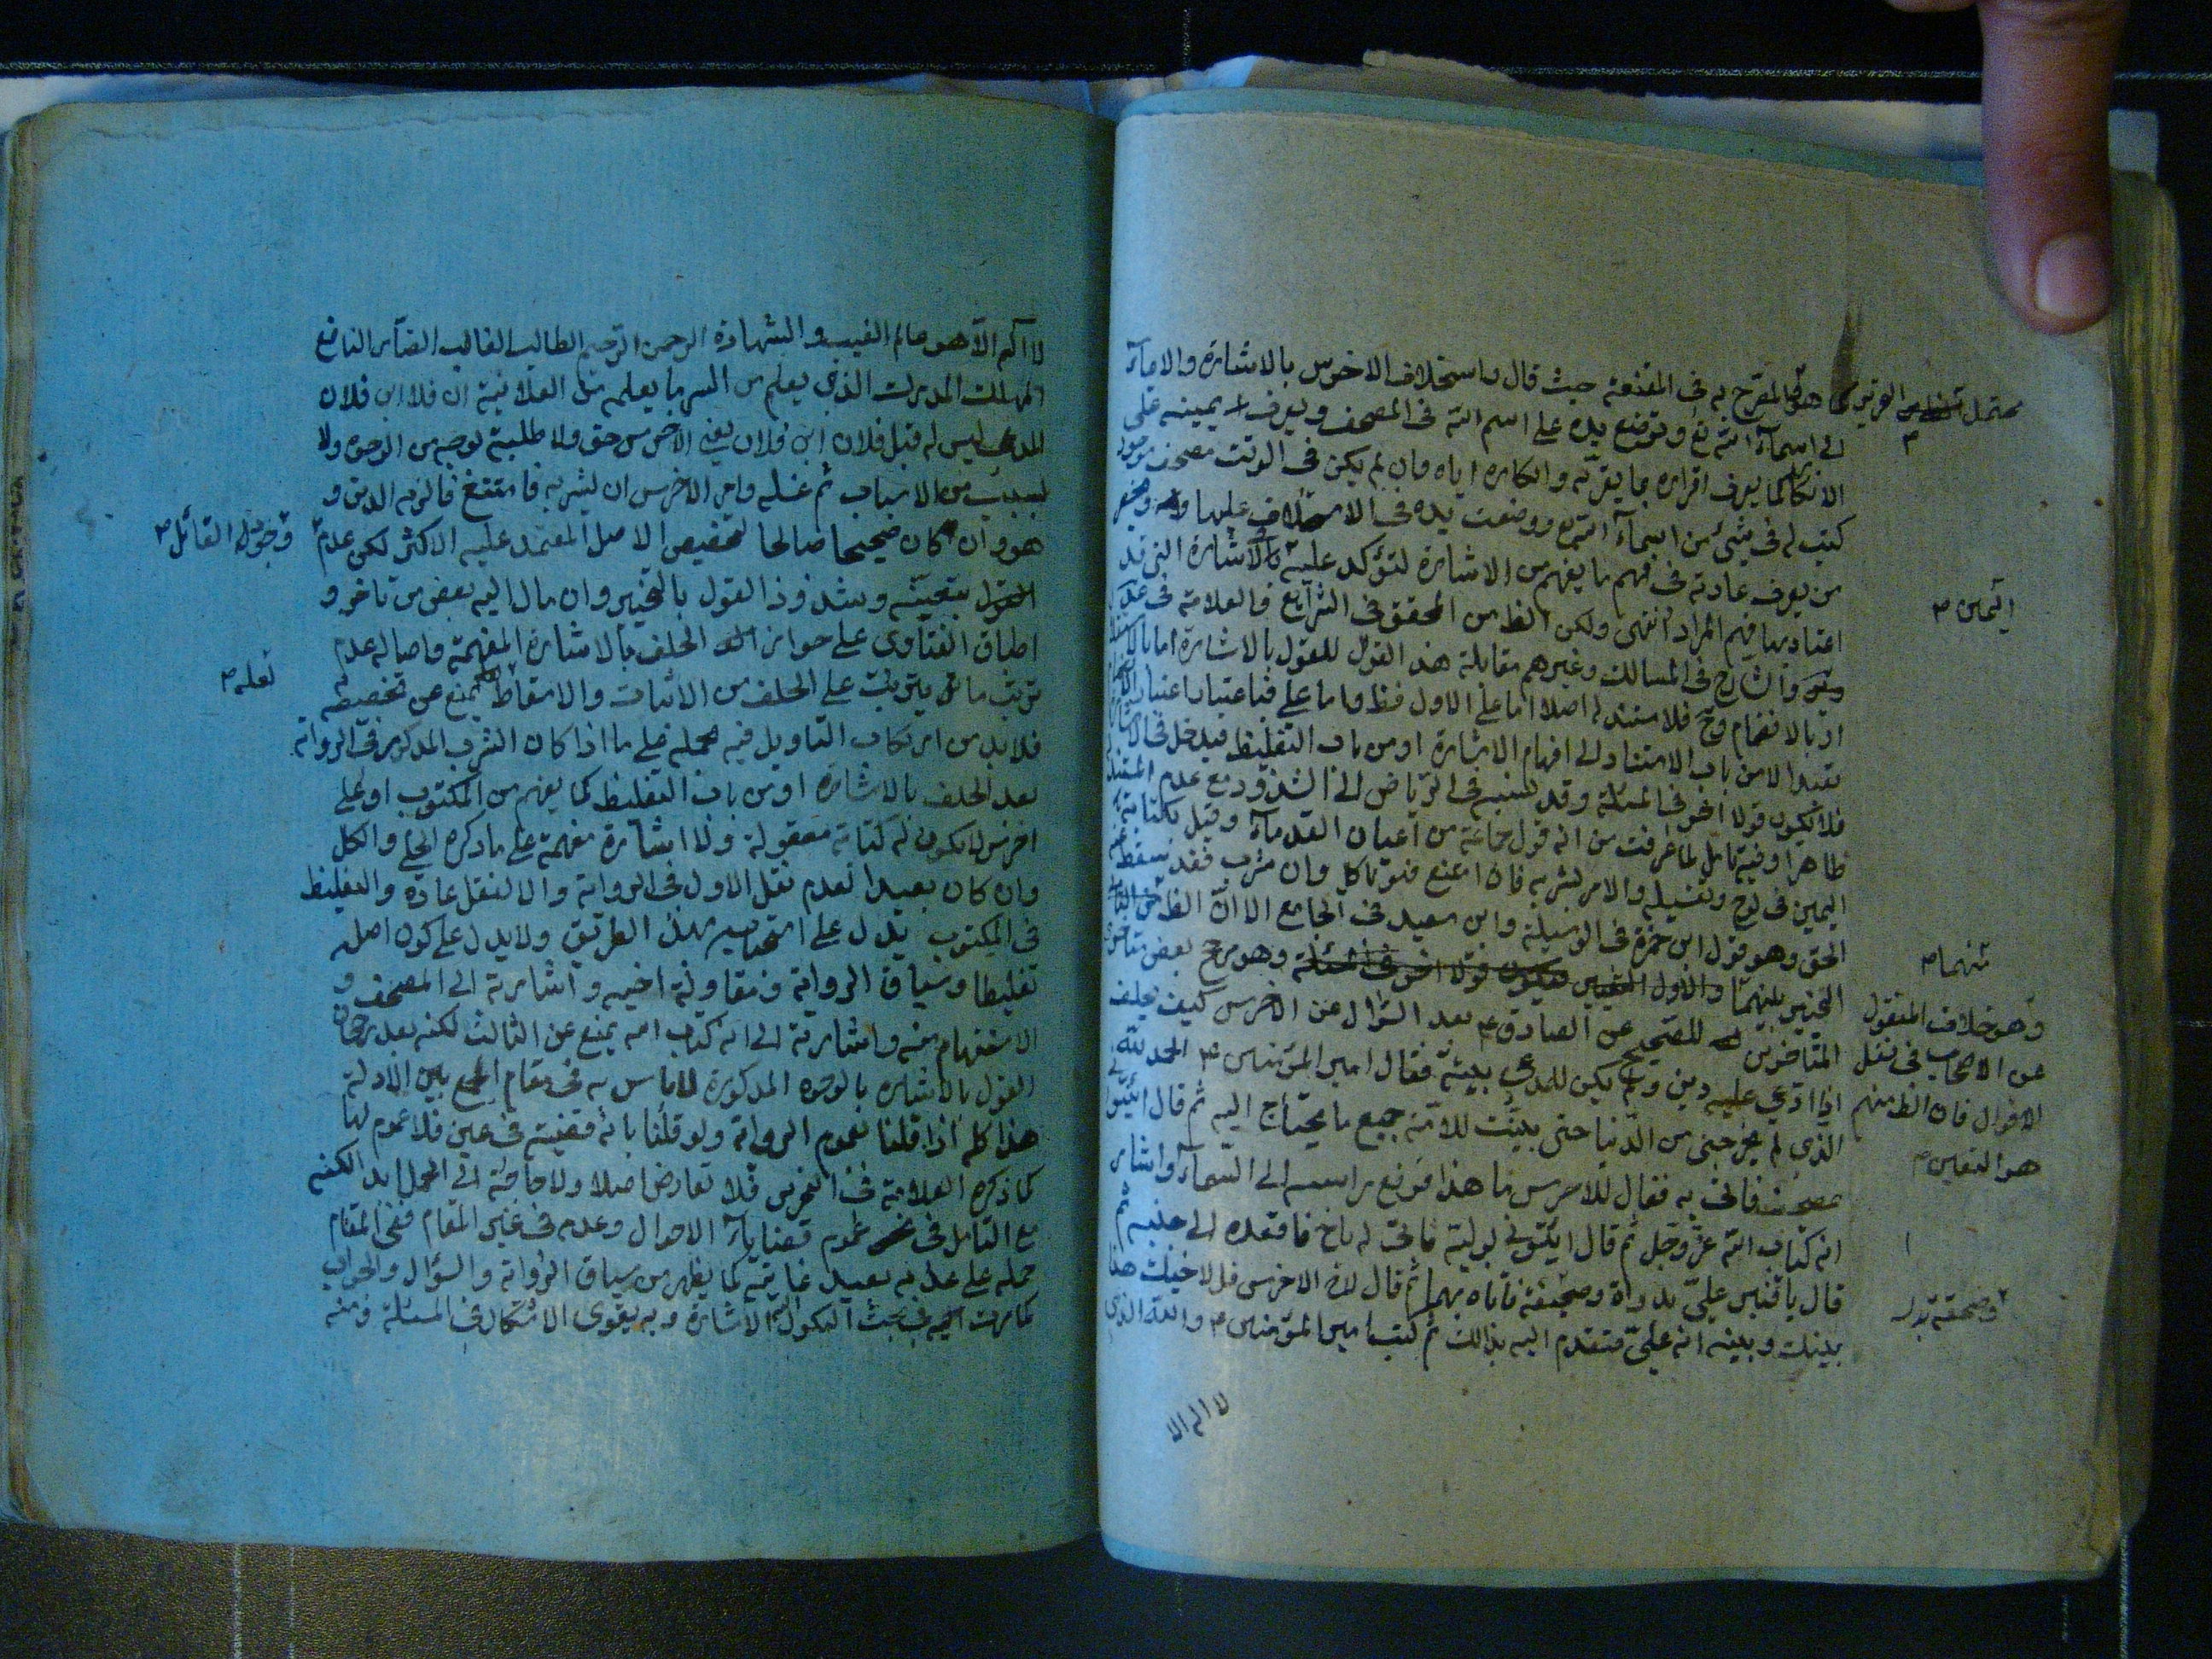 محتمل كما هو المصرح به فى المقنعة حيث قال واستحلاف الاخرس بالاشارة والايماء
الى اسماء الله تع وتوضع يده على اسم الله فى المصحف ويعرف يمينه على
الانكار كما يعرف اقراره بما يقر به وانكاره اياه وان لم يكن فى الوقت مصحف موجود
كتب له فى شئ من اسماء الله ووضعت يده فى الاستحلاف عليها ويحضر
من يعرف عادته فى فهم ما يفهم من الاشارة لتؤكد عليه بالاشارة التى قد
ايمين
اعتاد بها فهم المراد انتهى ولكن الظ من المحقق فى الشرايع والعلامة فى عد
والشارح فى المسالك وغيرهم مقابلة هذا القول للقول بالاشارة اما بالاستقلال
او بالانضمام وح فلا مستند له اصلا اما على الاول فظ واما على فباعتبار اعتبار
بعيد الا من باب الاستناد الى افهام الاشارة او من باب التغليظ فيدخل فى
فلا تكون قولا اخر فى المسئلة وقد نسبه فى الرياض الى الشذوذ مع عدم المستند
ظاهرا وفيه تامل لما عرفت من انه قول جماعة من اعيان القدماء وقيل بكتابة
اليمين فى لوح وتغسيله والامر بشربه فان امتنع فنو ناكل وان شرب فقد سقط
الحق وهو قول ابن حمزة فى الوسيلة وابن سعيد فى الجامع الا ان الظ من الثانى
التخيير بينهما والاول وهو مرجح بعض متاخرى
منهما
وهو خلاف المنقول
عن الاصحاب فى نقل
الاقوال فان الظ منهم
هو التعين
المتاخرين للصحيح عن الصادق ع بعد السؤال عن الاخرس كيف يحلف
اذا ادعي عليه دين ولم يكن للمدعي بينة فقال امير المؤمنين ع الحمد لله
الذى لم يخرجنى من الدنيا حتى بينت للامة جميع ما يحتاج اليه ثم قال ائتونى
بمصحف فاتى به فقال للاخرس ما هذا فرفع راسه الى السماء واشار
انه كتاب الله عز وجل ثم قال ائتونى بوليه فاتى له باخ فاقعده الى جنبه ثم
قال يا قنبر عليّ بدواة وصحيفة فاتاه بهما ثم قال لاخ الاخرس قل لاخيك هذا
بينك وبينه انه عليّ فتقدم اليه بذالك ثم كتب امير المؤمنين ع والله الذى
لا اله الا
لا اله الا هو عالم الغيب والشهادة الرحمن الرحيم الطالب الغالب الضار النافع
المهلك المدرك الذى يعلم من السر ما يعلمه من العلانية ان فلان ابن فلان
المدعي ليس له قبل فلان ابن فلان يعنى الاخرس حق ولا طلبة بوجه من الوجوه ولا
بسبب من الاسباب ثم غسله وامر الاخرس ان يشربه فامتنع فالزمه الدين و
هو وان كان صحيحا صالحا لتخصيص الاصل المعتمد عليه الاكثر لكن عدم
القول بتعينه وشذوذ القول بالتخيير وان مال اليه بعض من تاخر و
اطباق الفتاوى على جواز الحلف بالاشارة المفهمة واصالة عدم
ترتب ما يترتب على الحلف من الاثبات والاسقاط يمنع عن تخصيصه
لعله
فلا بد من ارتكاب التاويل فيه بحمله على ما اذا كان الشرب المذكور فى الرواية
بعد الحلف بالاشارة او من باب التغليظ كما يفهم من المكتوب او على
اخرس لا يكون له كتابة معقولة ولا اشارة مفهمة على ما ذكره الحلي والكل
وان كان بعيدا لعدم نقل الاول فى الرواية والا لنقل عادة والتغليظ
فى المكتوب يدل على استحبابه بهذا الطريق ولا يدل على كون اصله
تغليظا وسياق الرواية ومقاولة اخيه واشارته الى المصحف و
الاستفهام منه واشارته الى انه كتاب الله يمنع عن الثالث لكنه بعد رجحان
القول بالاشارة بالوجوه المذكورة لا باس به فى مقام الجمع بين الادلة
هذا كله اذا قلنا بعموم الرواية ولو قلنا بانه قضية فى عين فلا عموم لها
كما ذكره العلامة فى التحرير فلا تعارض اصلا ولا حاجة الى الحمل ابدا لكنه
مع التامل فى عموم قضايا الاحوال وعدمه فى غير المقام ففى المقام
حمله على عدمه بعيد غايته كما يظهر من سياق الرواية والسؤال والجواب
كما مرت اليه فى بحث النكول الاشارة وبه يقوى الاشكال فى المسئلة ومنه